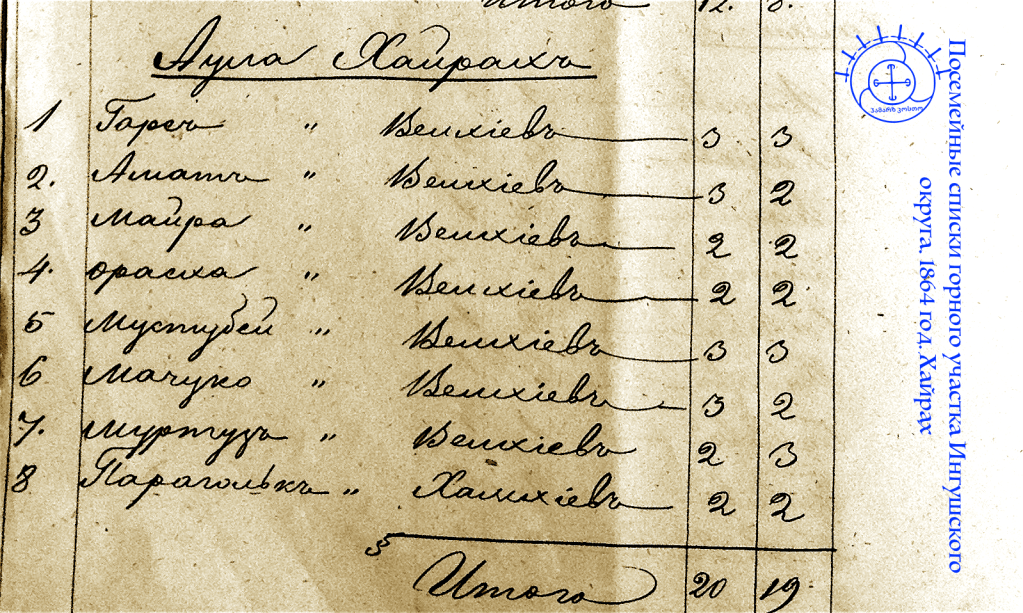 Итого 12. 8.
Аула Хайрахъ
1 Гарсъ " Велхіевъ 3 3
2. Аматъ " Велхіевъ 3 2
3 Майра " Велхіевъ 2 2
4. Орасха " Велхіевъ 2 2
5 Мустубей " Велхіевъ 3 3
6 Мачуко " Велхіевъ 3 2
7. Муртузъ " Велхіевъ 2 3
8 Парагулькъ " Халмхіевъ 2 2
Итого 20 19.
Посемейные списки горного участка Ингушского
округа. 1864 год.Хайрах